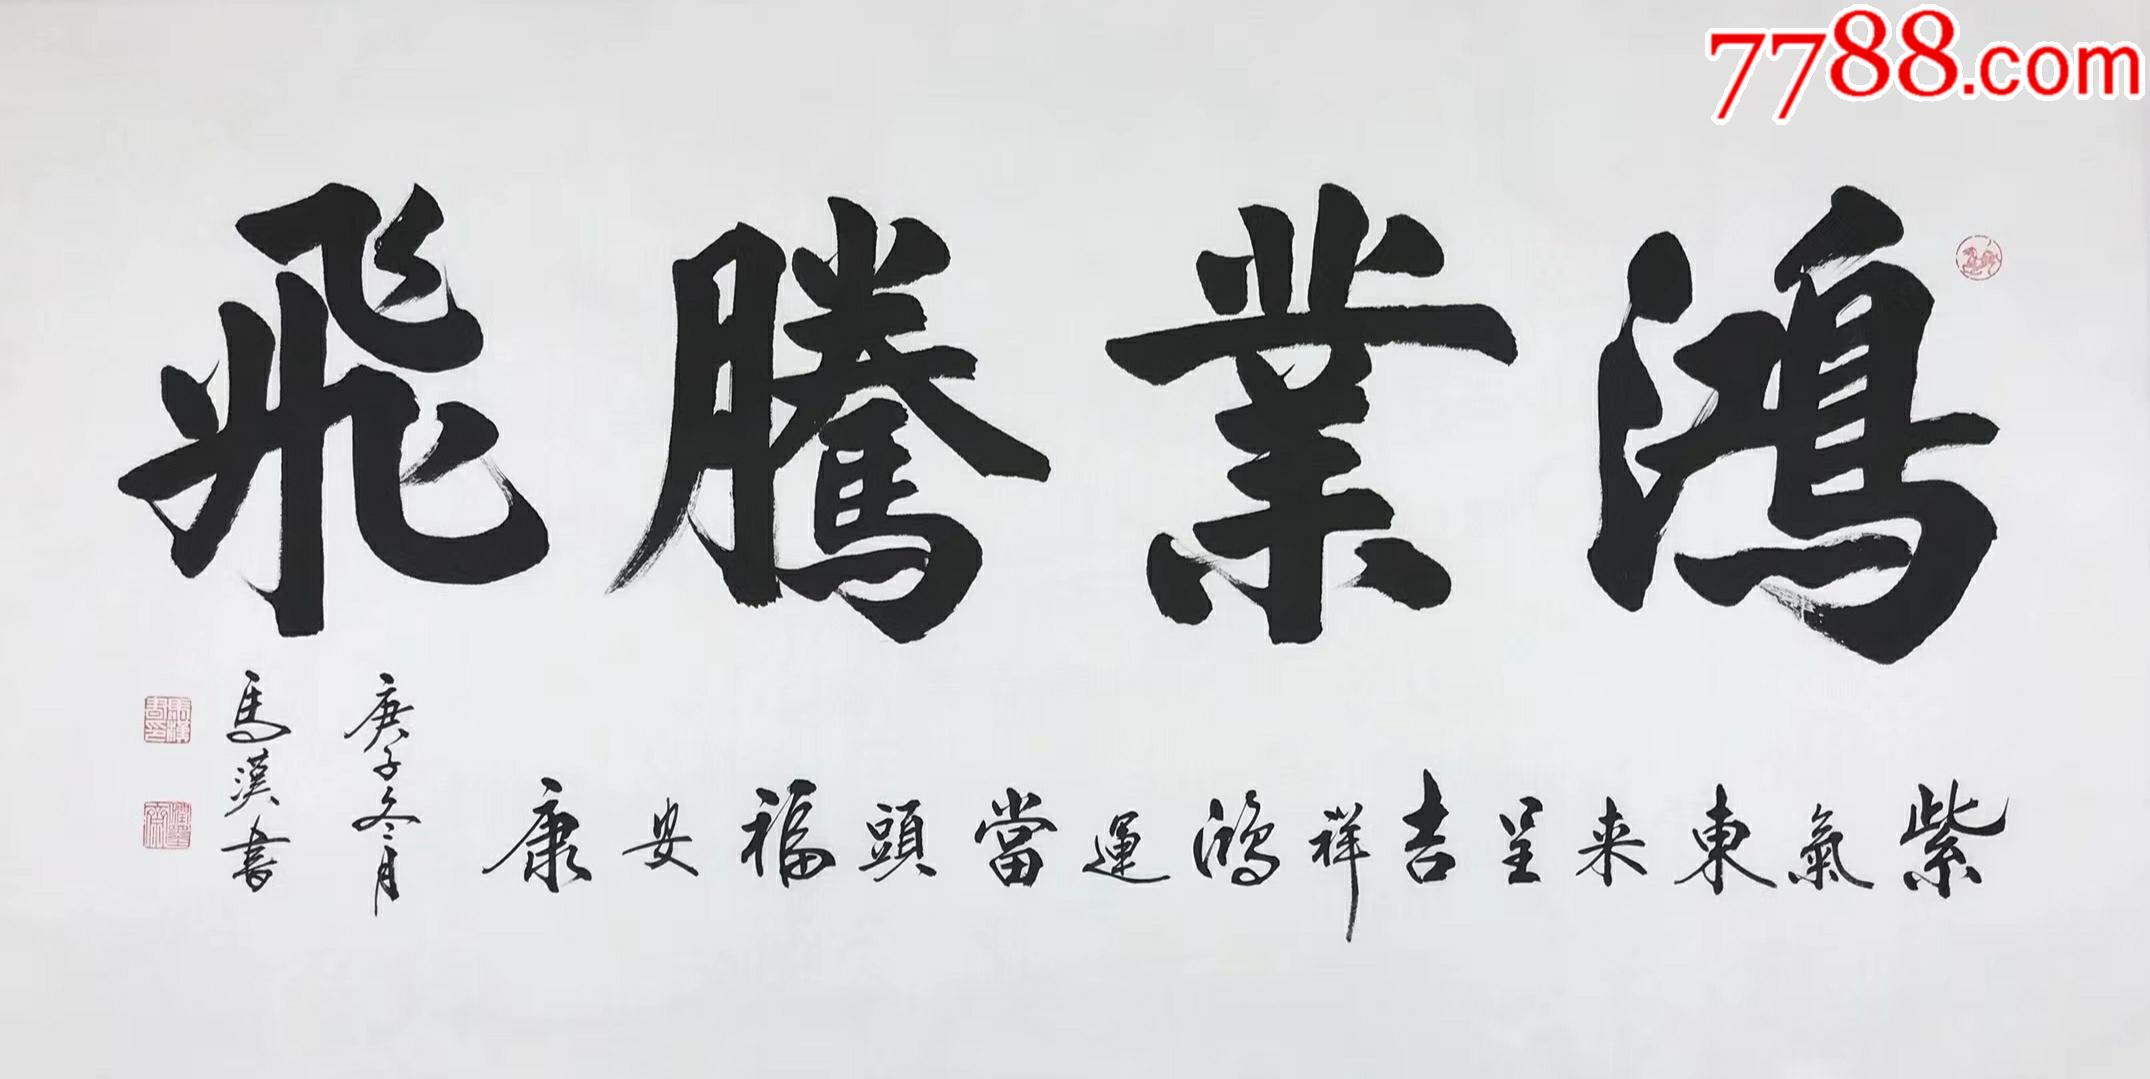 7788.com
鴻業騰飛
紫氣東来呈吉祥鴻運當頭福安康
庚子冬月
馬漢書